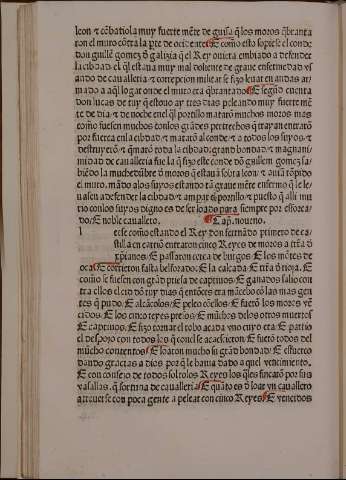 leon & cõbatiola muy fuerte mẽte de guisa q̃ los moros q̃branta
ron el muro cõtra la pte de ocidẽte E como esto sopiese el conde
don guillẽ gomez đ galizia q̃ el Rey ouiera embiado a defender
la cibdad el q̃l estaua muy mal dolente de graue enfermedad
ando de caualleria & correpcion militar se fizo leuar en andas ar
mado a aq̃l logar onde el muro era q̃brantado E segũd cuenta
don lucas de tuy q̃ estouo ay tres dias peleando muy fuerte mẽ
te de dia & de noche en el q̃l portillo mataro muchos moros mas
como fuesen muchos con los grãdes pertrechos q̃ trayan entrarõ
por fuerça en la cibdad & mataro al conde & a todos los suyos &
destruyerõ & q̃maro toda la cibdad grand bondad & magnani
midad de caualleria fue la q̃ fizo este conde dõ guillem gomez sa
biẽdo la muchedũbre đ moros q̃ estaua sobra leon & auia rõpido
el muro mãdo a los suyos estando tã graue mẽte enfermo q̃ le le
uasen a defender la cibdad & amparar el portillo & puesto q̃ alli mu
rio con los suyos digno es de ser loado para siempre por esforça
do E noble cauallero. Cap. noueno.
este como estando el Rey don fernãdo primero de ca
stilla en carriõ entraron cinco Reyes de moros a tr̃ra đ
xp̃ianos E passaron cerca de burgos E los mõtes de
oca E corrieron fasta belforado E la calçada E tr̃ra đ rioja E
como se fuesen con grãd priesa de captiuos E ganados salio con
tra ellos el cid dõ ruy dias q̃ entõces era mãcebo cõ las mas gen
tes q̃ pudo E alcãçolos E peleo cõ ellos E fuerõ los moros vẽ
cidos E los cinco reyes presos E muchos delos otros muertos
E captiuos E fizo tornar el robo a cada vno cuyo era E partio
el despojo con todos los q̃ con el se acaescieron E fuerõ todos del
mucho contentos E loaron mucho su grãd bondad E esfuerço
dando gracias a dios por q̃ le hauia dado a quel vencimiento.
E con consejo de todos solto los Reyes los q̃les fincarõ por sus
vasallas. q̃ fortuna de caualleria E quãto es đ loar vn cauallero
atreuerse con poca gente a pelear con cinco Reyes E vencidos